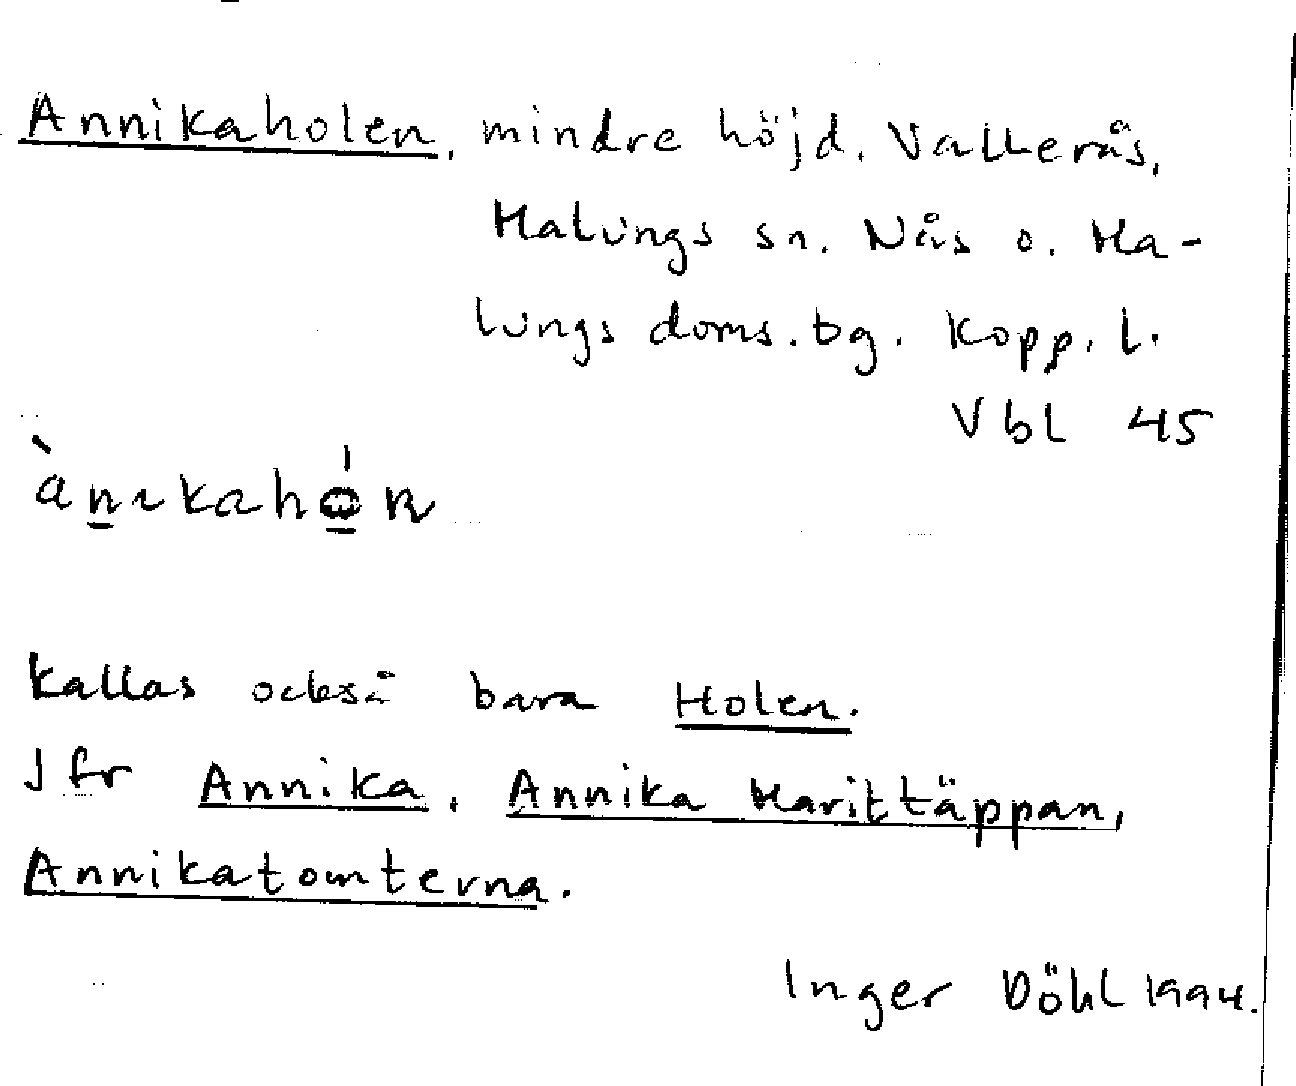 Annikaholen, mindre höjd. Vallerås,
Malungs sn. Nås o. Ma-
lungs doms.bg. Kopp. l.
Vbl 45
Kallas också bara Holen.
Jfr Annika, Annika Marittäppan,
Annikatomterna.
Inger Döhl 1994.